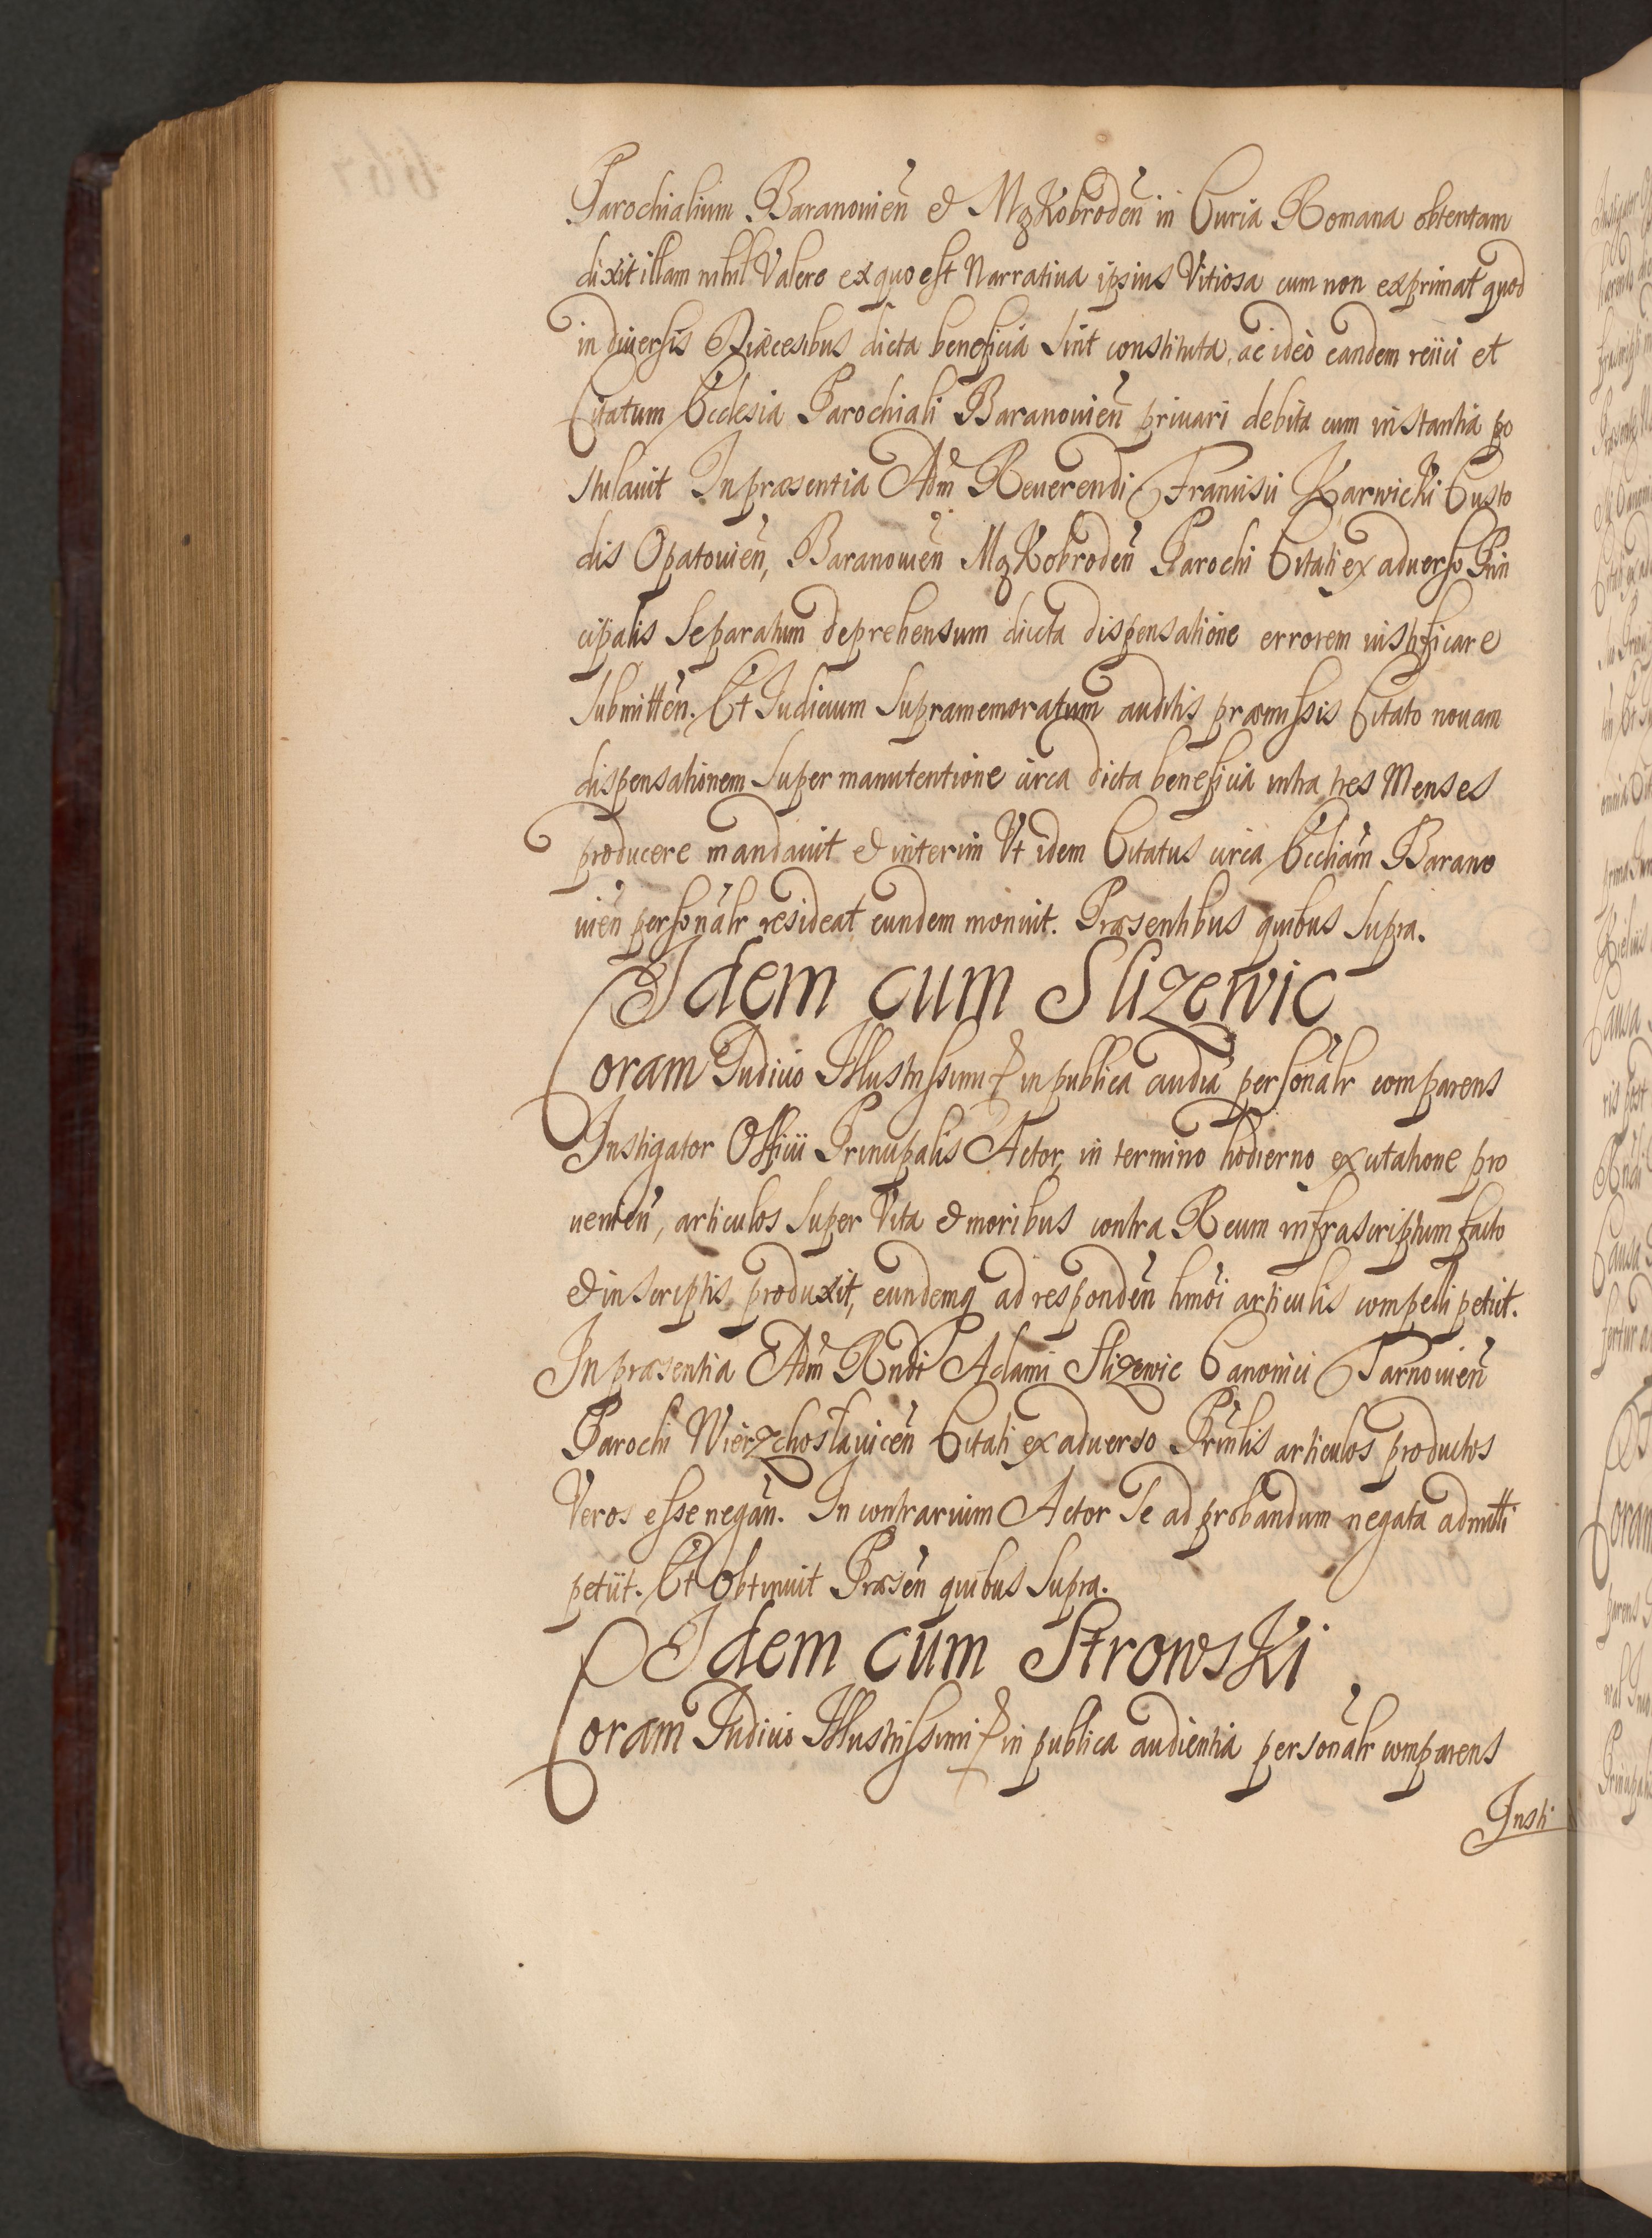 Parochialium Baranovien̄ & MqKobroden̄ in Curia Romana obtentam
dixit illam nihil Valere ex quo est Narrativa ipsius Vitiosa cum non exprimat quod
in diversis Diæcesibus dicta beneficia sint constituta, ac ideò eandem reiici et
Citatum Ecclesia Parochiali Baranovien̄ privari debita cum instantia po
stulavit In præsentia Adm̄ Reverendi Francisci Karwicki Custo
dis Opatovien̄, Baranovien̄ MqKobroden̄ Parochi Citati ex adverso Prin
cipalis Separatum deprehensum dicta dispensatione errorem iustificare
Submitten̄. Et Iudicium Supramemoratum auditis præmissis Citato novam
dispensationem Super manutentione circa dicta beneficia intra tres Menses
producere mandavit & interim Vt idem Citatus circa Eccliam̄ Barano
vien̄ personalr̄ resideat eundem monuit. Præsentibus quibus Supra.
Idem cum Slizewic
Coram Iudicio Illustrissimi & in publica audia̅ personalr̄ comparens
Instigator Officii Principalis Actor, in termino hodierno ex citatione pro
venien̄, articulos Super Vita & moribus contra Reum infrascriptum facto
& in Scriptis produxit, eundemq ad responden̄ hmōi articulis compelli petiit.
In præsentia Adm̄ Rndi Adami Slizewic Canonici Tarnovien̄
Parochi Wierzchoslavicen̄ Citati ex adverso Prin̄lis articulos productos
Veros esse negan̄. In contrarium Actor Se ad probandum negata admitti
petiit. Et Obtinuit Præsen̄ quibus Supra.
Idem cum Strowski
Coram Iudicio Illustrissimi & in publica audientia personalr̄ comparens
Insti